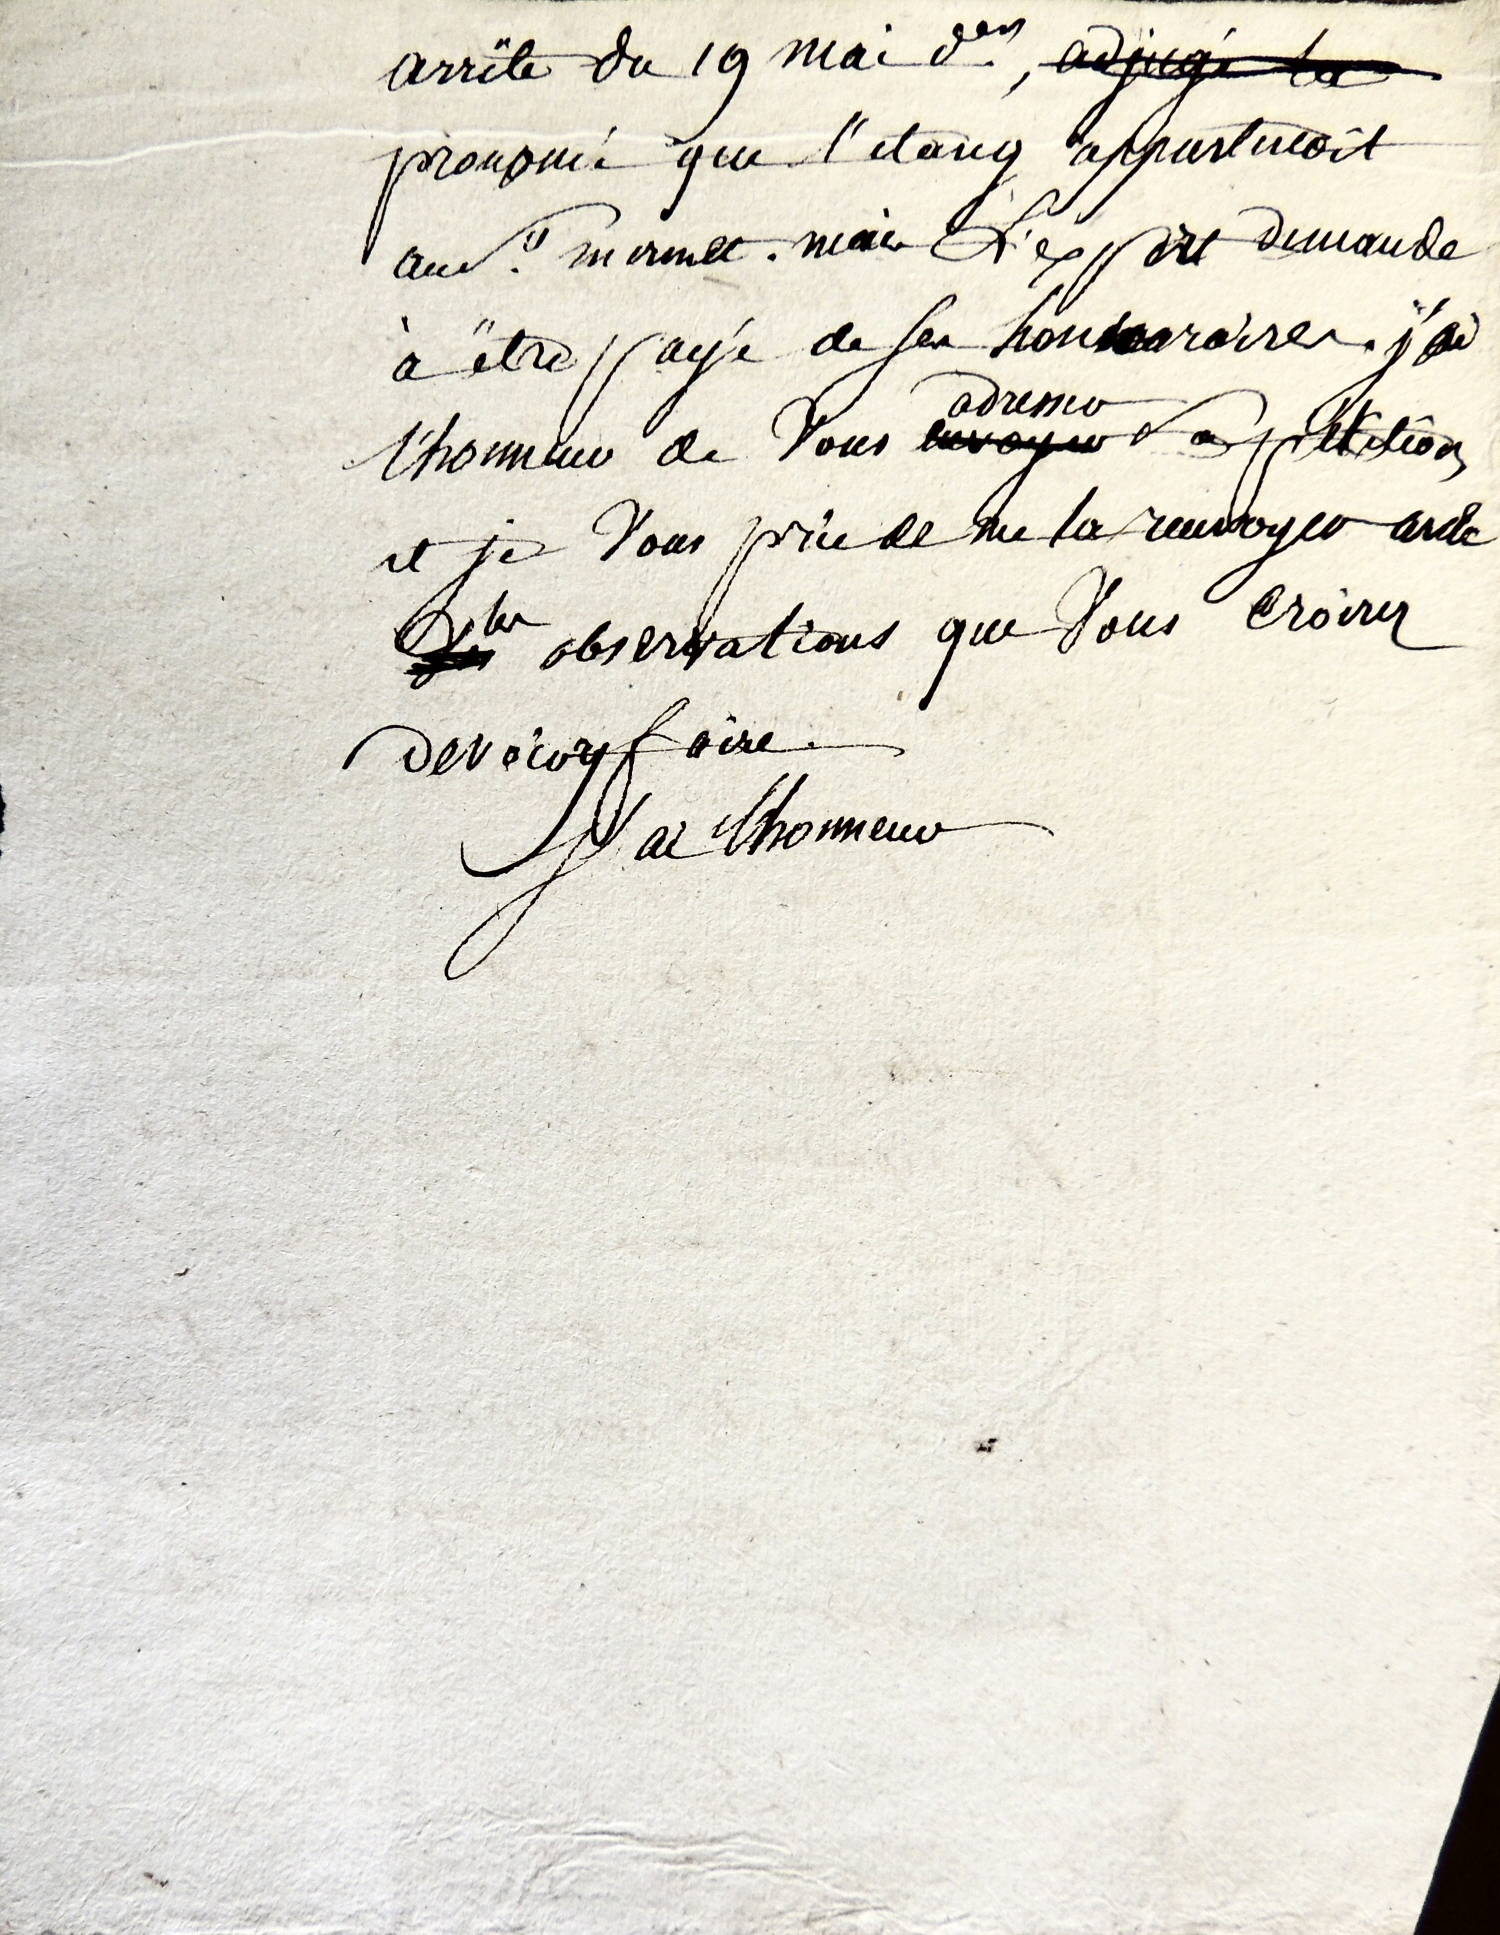 arrêté du 19 mai der, adjugé la
prononcé que l'etang appartenoit
au Sr mermet. mais L'expert demande
à être payé de ses honoraires. j'ai
l'honneur de Vous envoyer adresser sa pétition,
et je Vous prie de me la renvoyer avec
les observations que Vous croirez
devoir y faire.
J'ai l'honneur